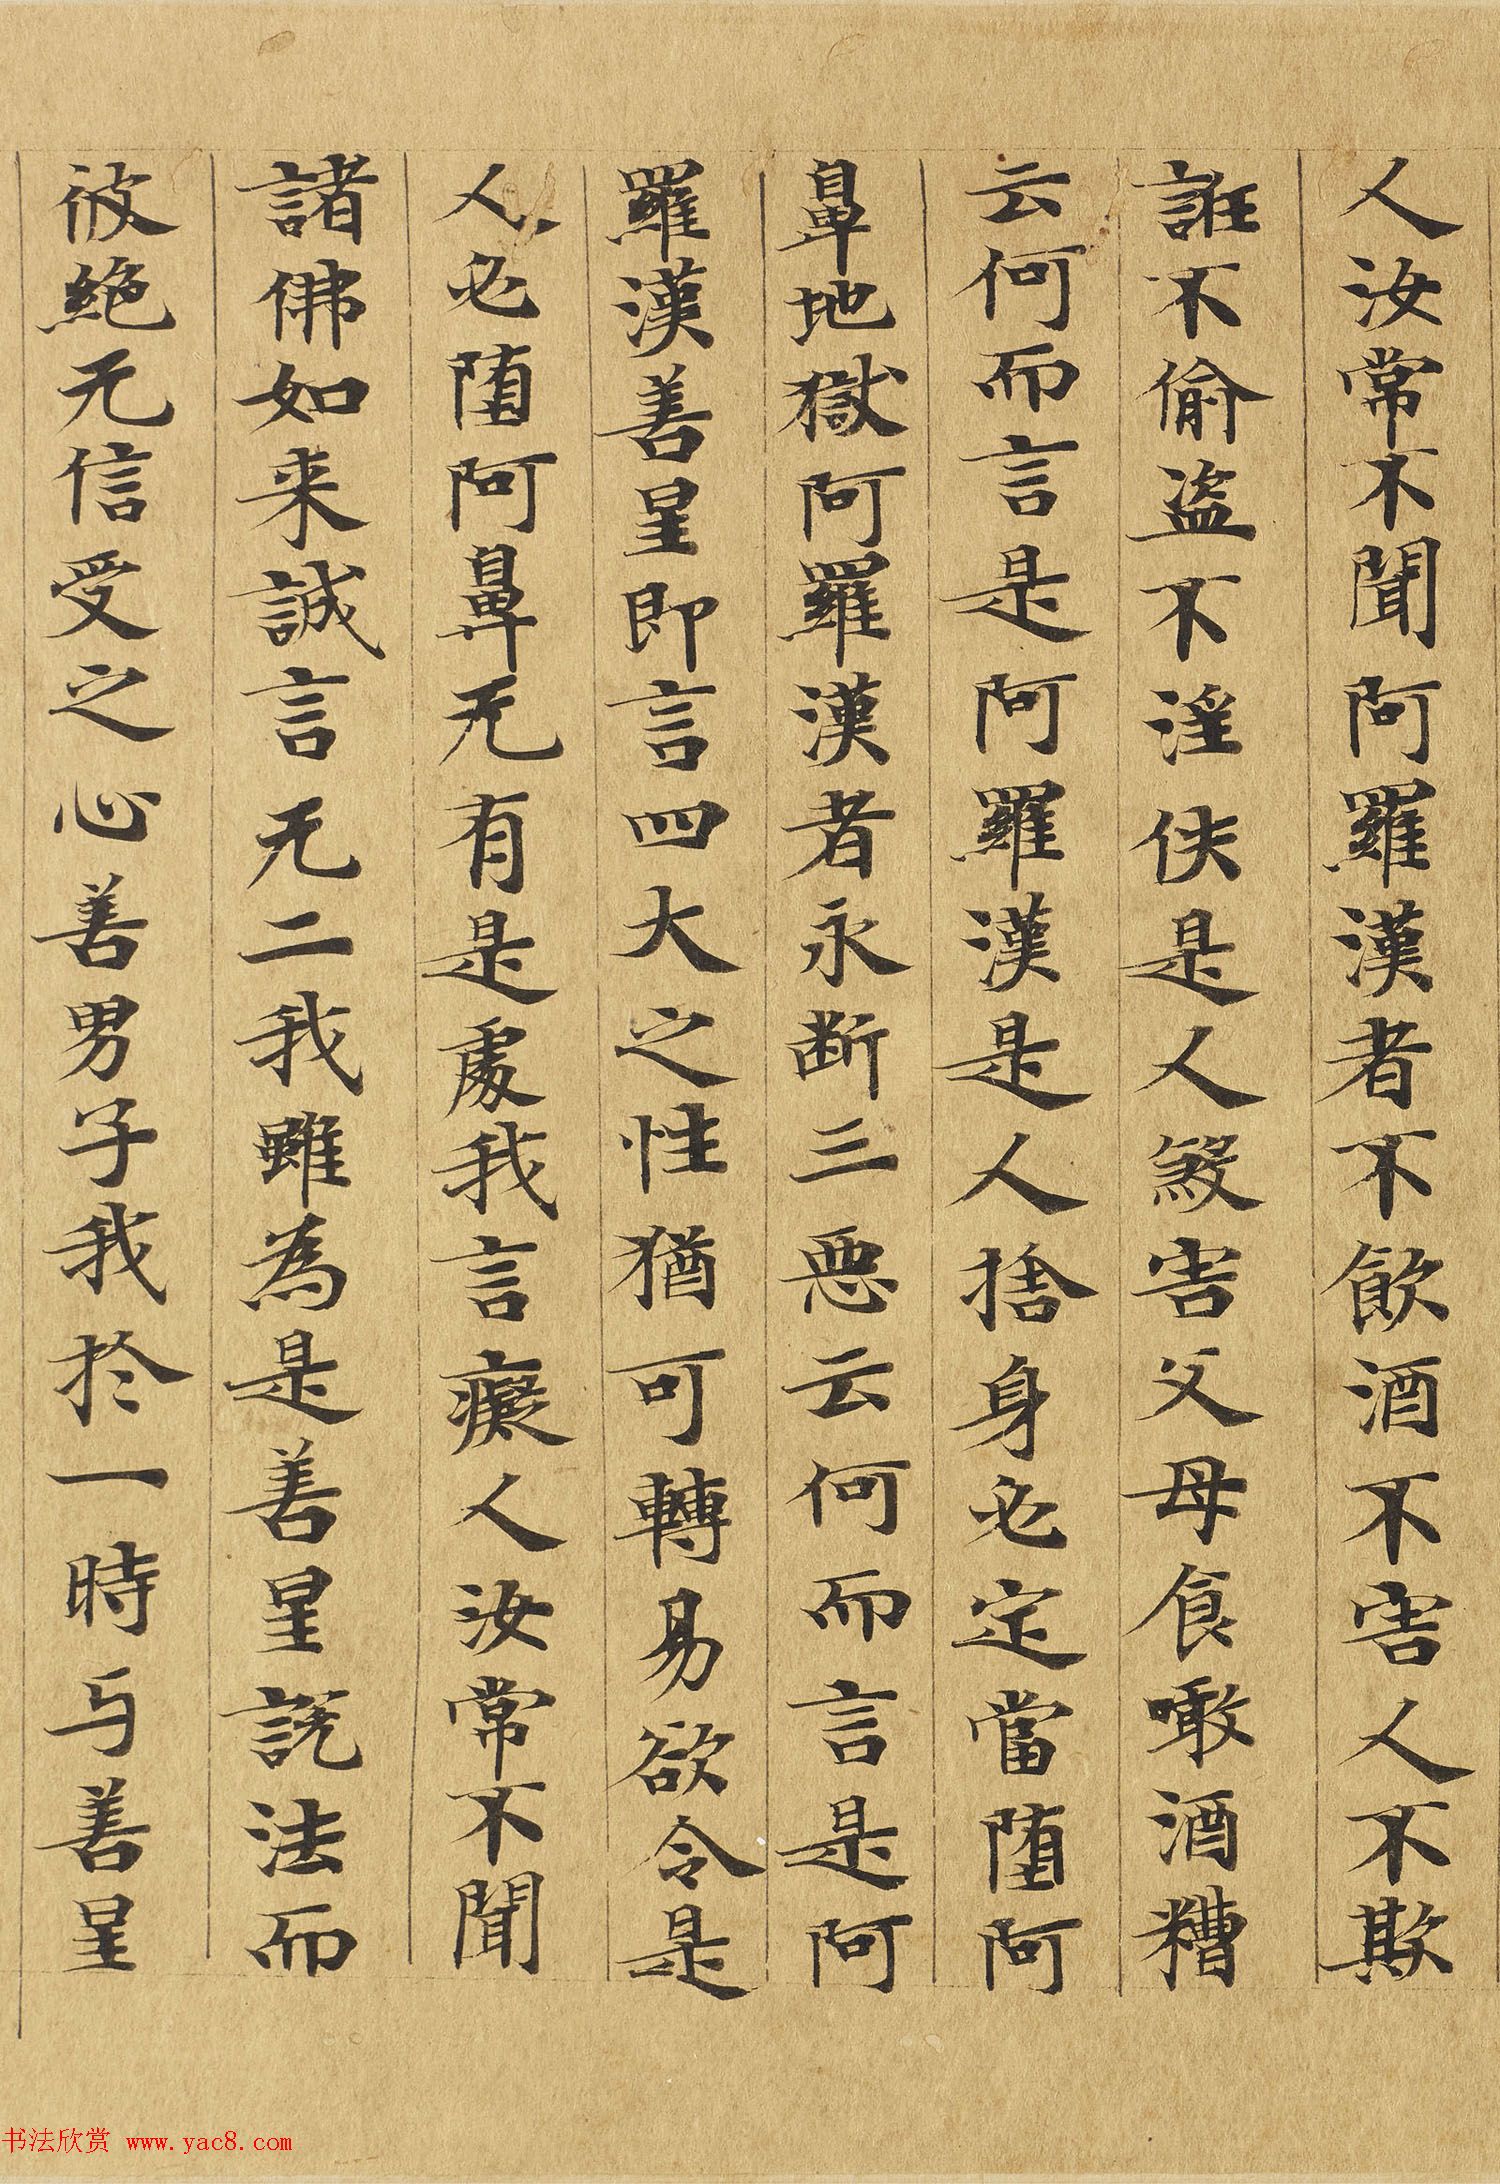 人汝常不聞阿羅漢者不飲酒不害人不欺
誑不偷盜不淫佚是人煞害父母食噉酒糟
云何而言是阿羅漢是人捨身必定當堕阿
鼻地獄阿羅漢者永断三惡云何而言是阿
羅漢善星即言四大之性猶可轉易欲令是
人必堕阿鼻无有是處我言癡人汝常不聞
諸佛如来誠言无二我雖為是善星說法而
彼絶无信受之心善男子我於一時与善星
书法欣赏 www.yac8.com